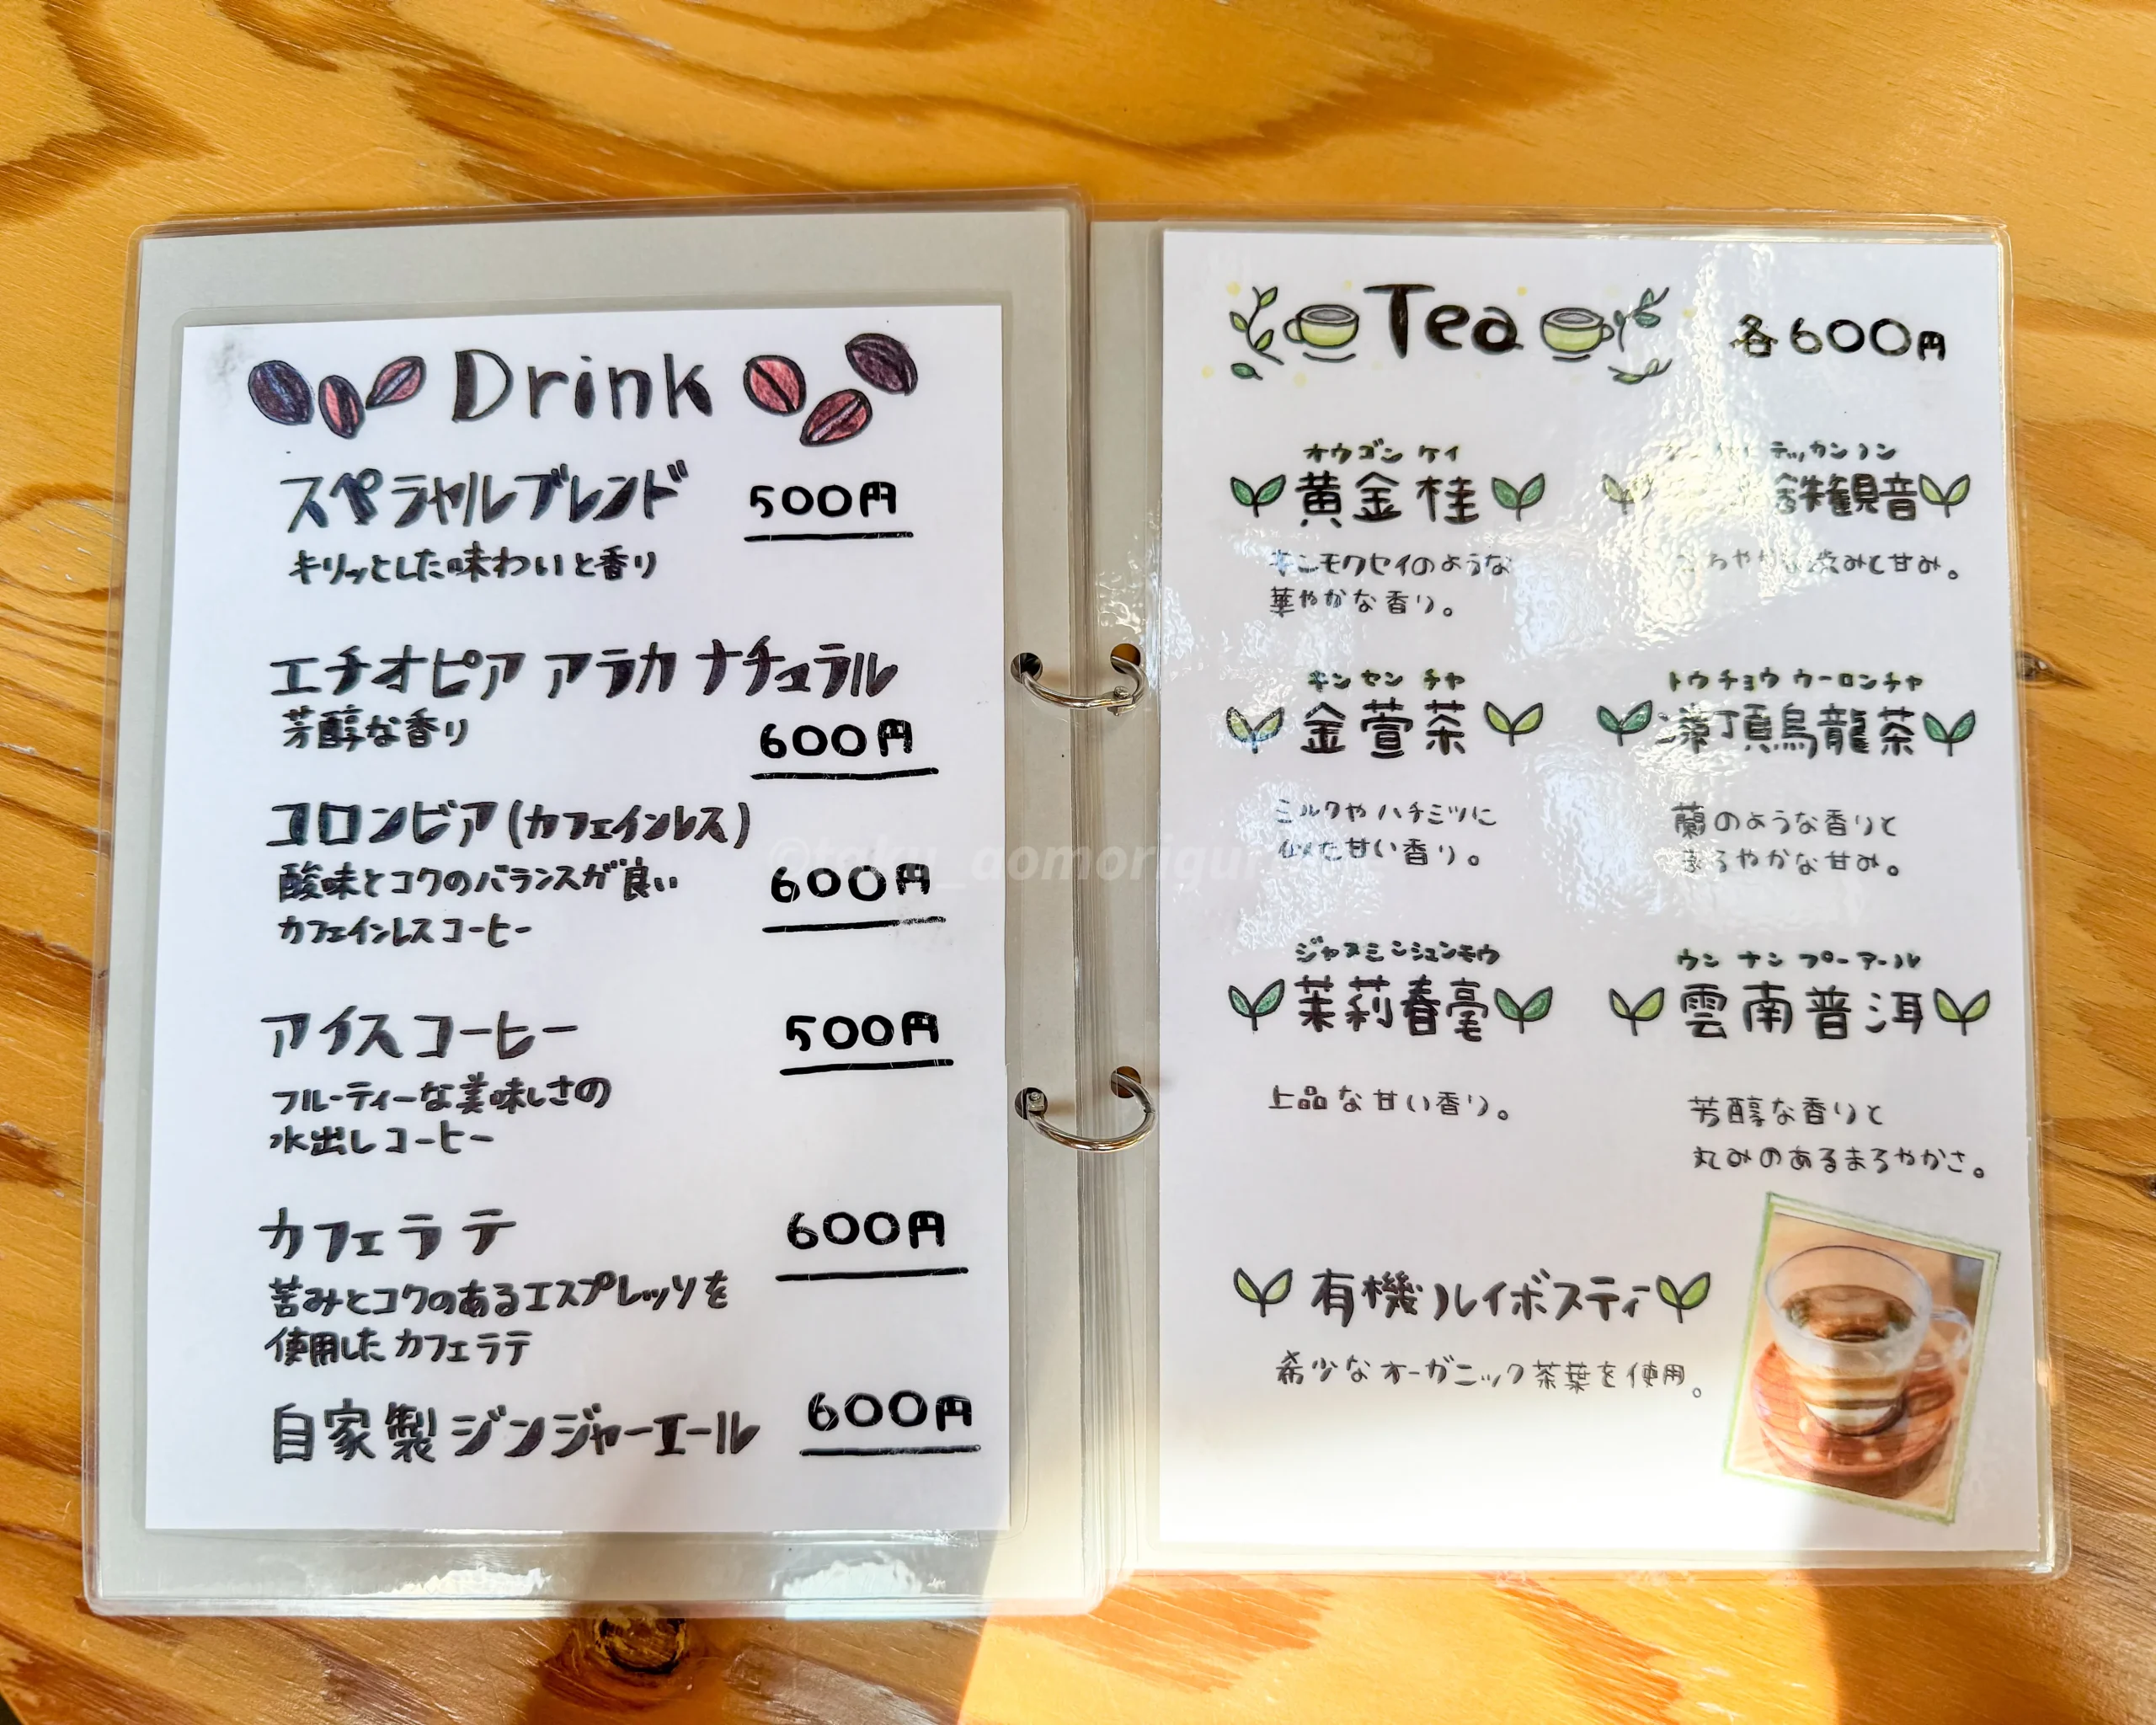 Drink
スペシャルブレンド 500円
キリッとした味わいと香り
エチオピア アラカ ナチュラル
芳醇な香り
600円
コロンビア(カフェインレス)
酸味とコクのバランスが良い 600円
カフェインレスコーヒー
アイスコーヒー 500円
フルーティーな美味しさの
水出しコーヒー
カフェラテ 600円
苦みとコクのあるエスプレッソを
使用したカフェラテ
自家製ジンジャーエール 600円
Tea 各600円
オウゴン ケイ
黄金桂
キンモクセイのような
華やかな香り。
テッカンノン
鉄観音
渋みと甘み。
キン セン チャ
金萱茶
ミルクやハチミツに
似た甘い香り。
トウチョウ ウーロンチャ
凍頂烏龍茶
蘭のような香りと
まろやかな甘み。
ジャスミンシュンモウ
茉莉春毫
上品な甘い香り。
ウン ナン プーアール
雲南普洱
芳醇な香りと
丸みのあるまろやかさ。
有機ルイボスティ
希少なオーガニック茶葉を使用。